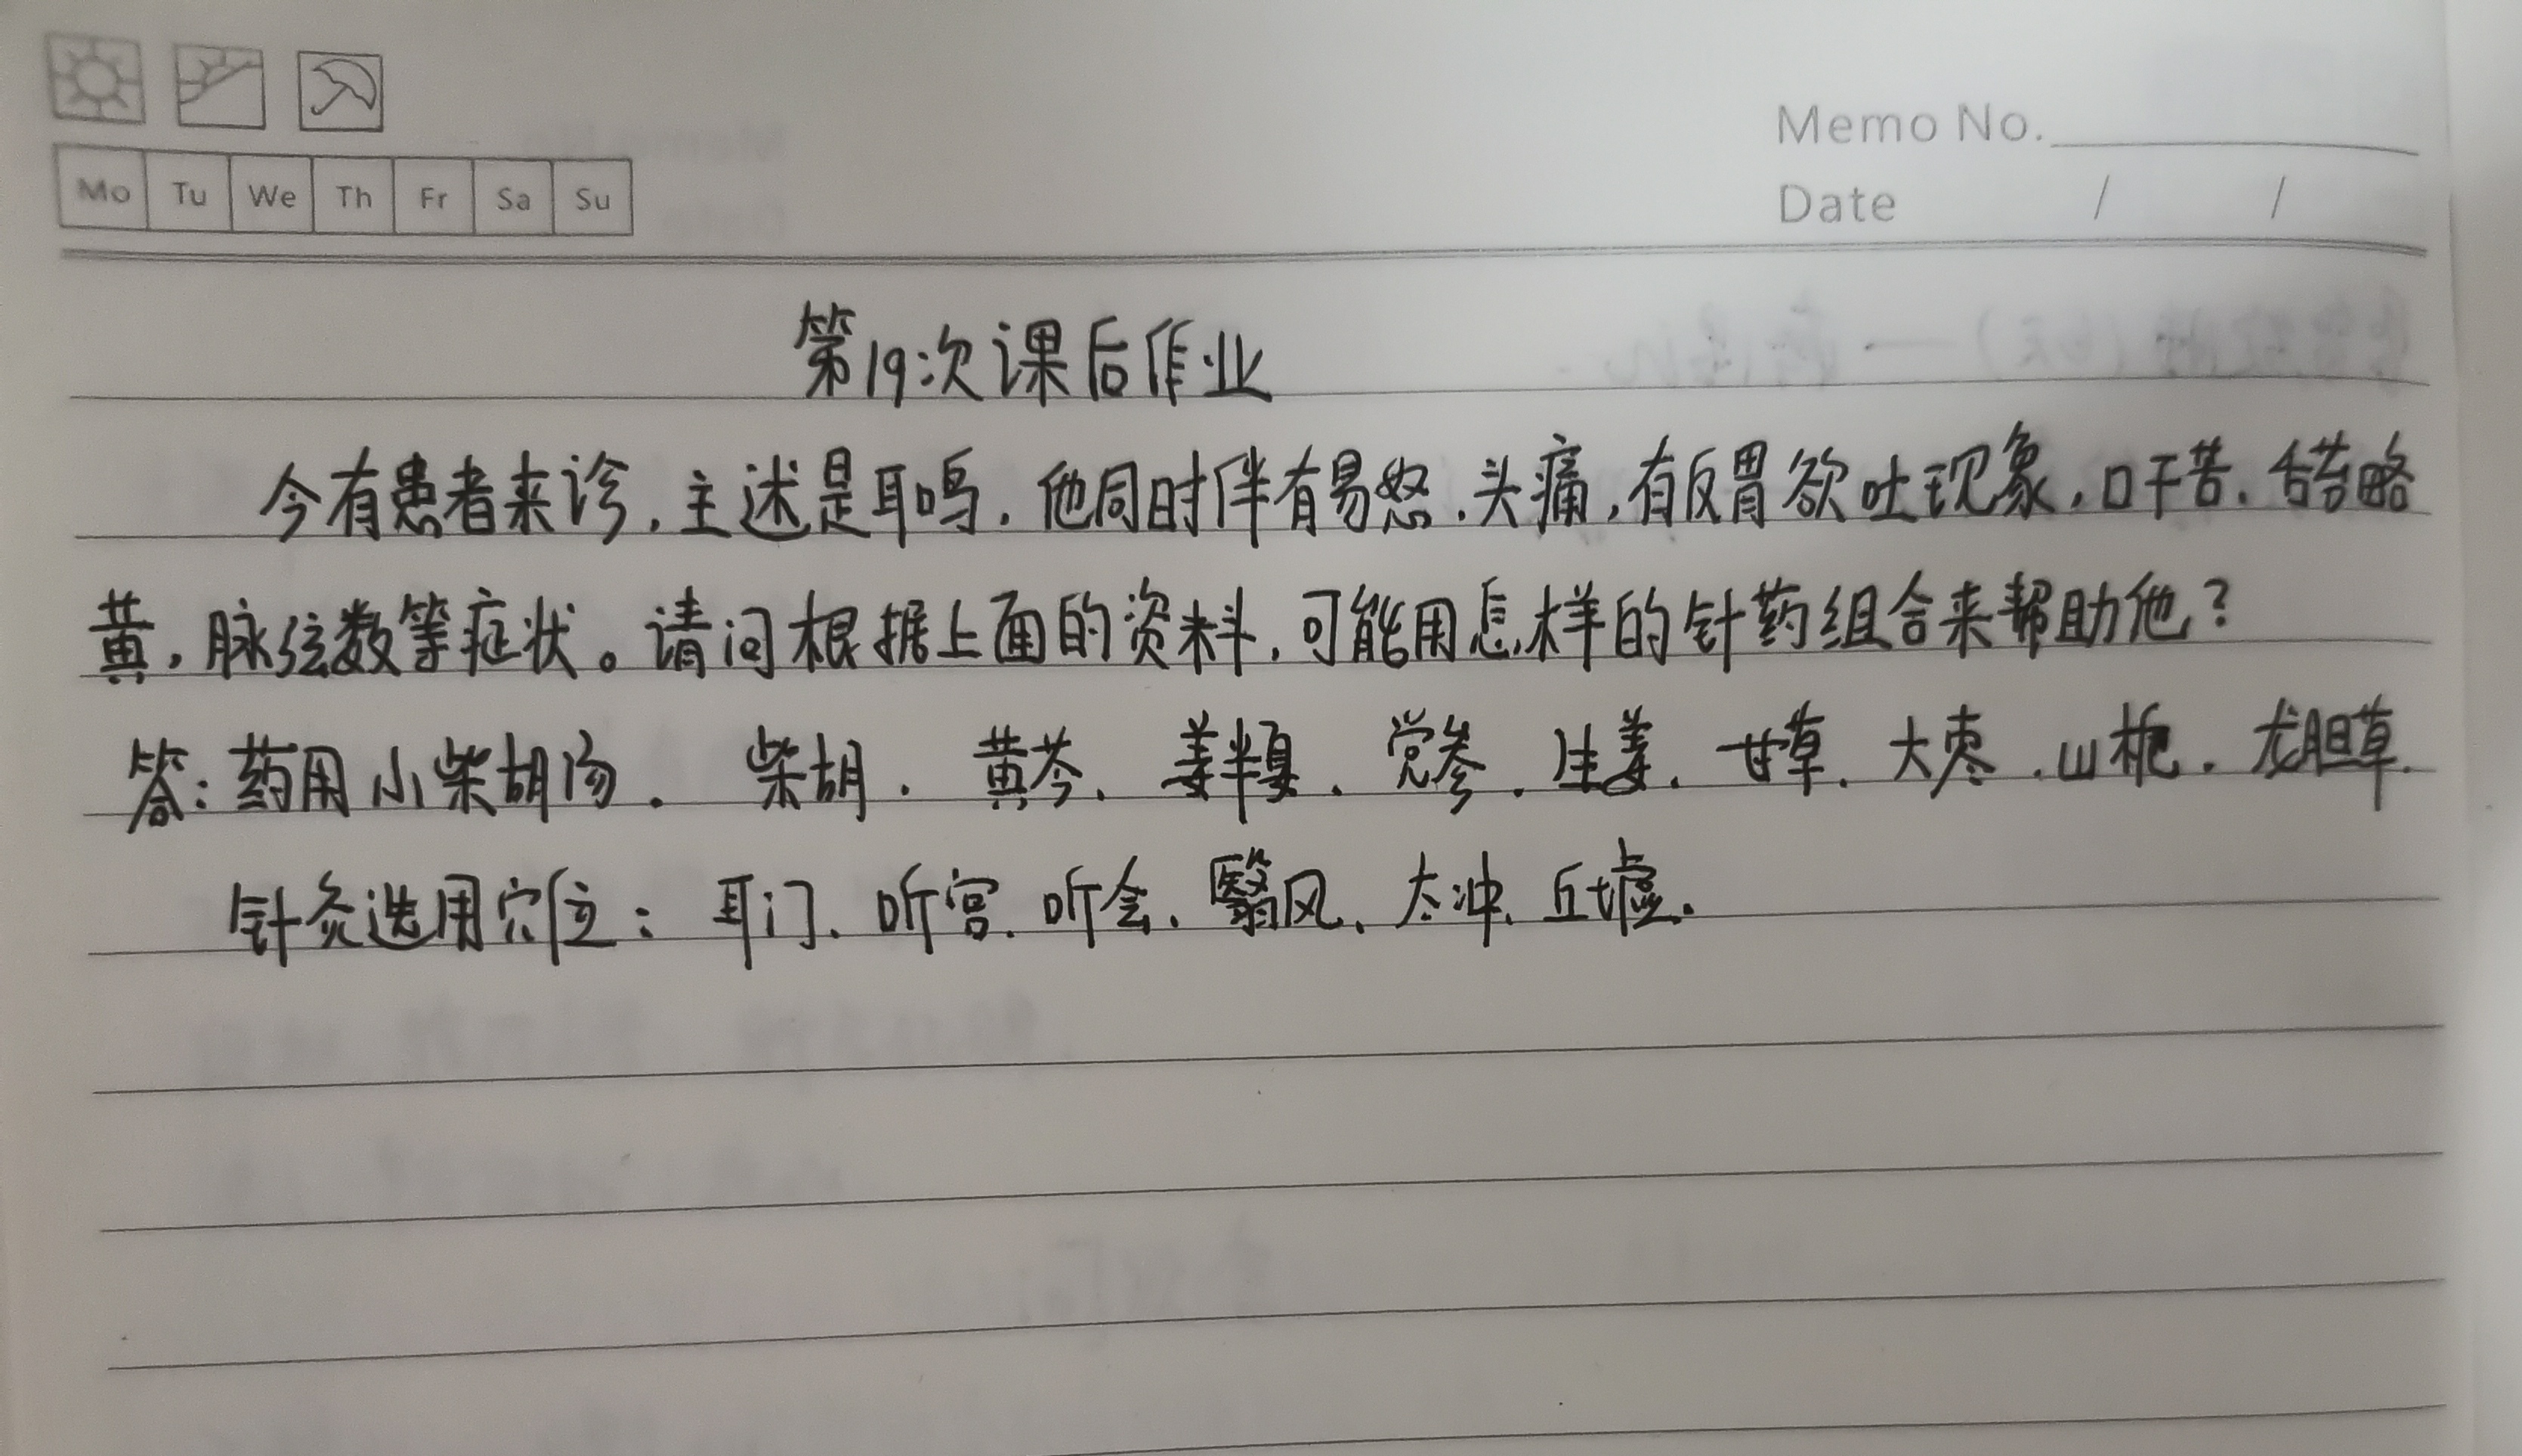 Memo No.
Mo Tu We Th Fr Sa Su
Date / /
第19次课后作业
今有患者来诊,主述是耳鸣,他同时伴有易怒、头痛,有反胃欲吐现象,口干苦、舌苔略
黄,脉弦数等症状。请问根据上面的资料,可能用怎样的针药组合来帮助他?
答:药用小柴胡汤. 柴胡. 黄芩、姜半夏、党参、生姜、甘草、大枣、山栀、龙胆草.
针灸选用穴位:耳门、听宫、听会、翳风、太冲、丘墟.